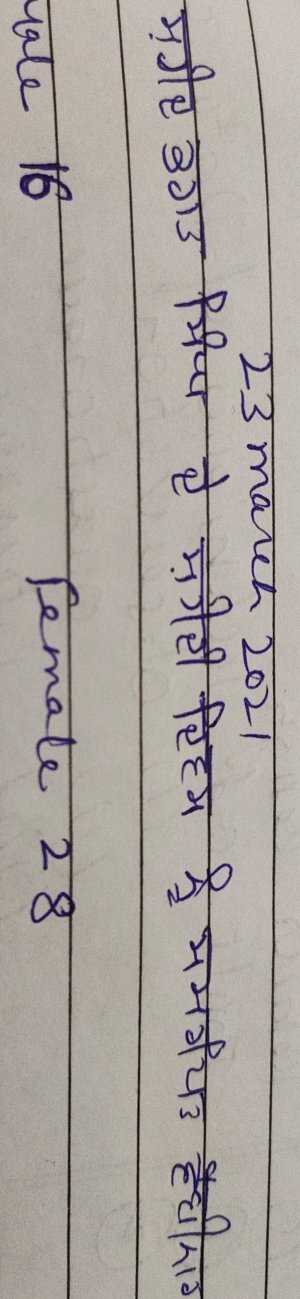 23 march 2021
ਸ਼ਹੀਦ ਭਗਤ ਸਿੰਘ ਦੇ ਸ਼ਹੀਦੀ ਦਿਵਸ ਨੂੰ ਸਮਰਪਿਤ
male 16 female 28